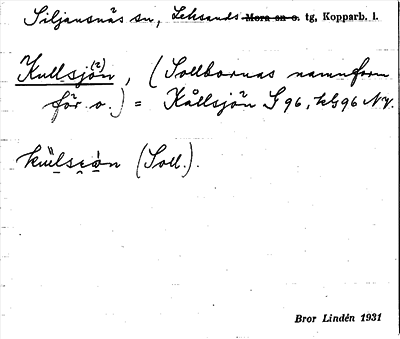 Siljansnäs sn, Leksands Mora sn o. tg, Kopparb. l.
Kullsjön (2), (Sollbornas namnform
för o.) = Kållsjön S 96, kG96 NV.
(Soll.).
Bror Lindén 1931